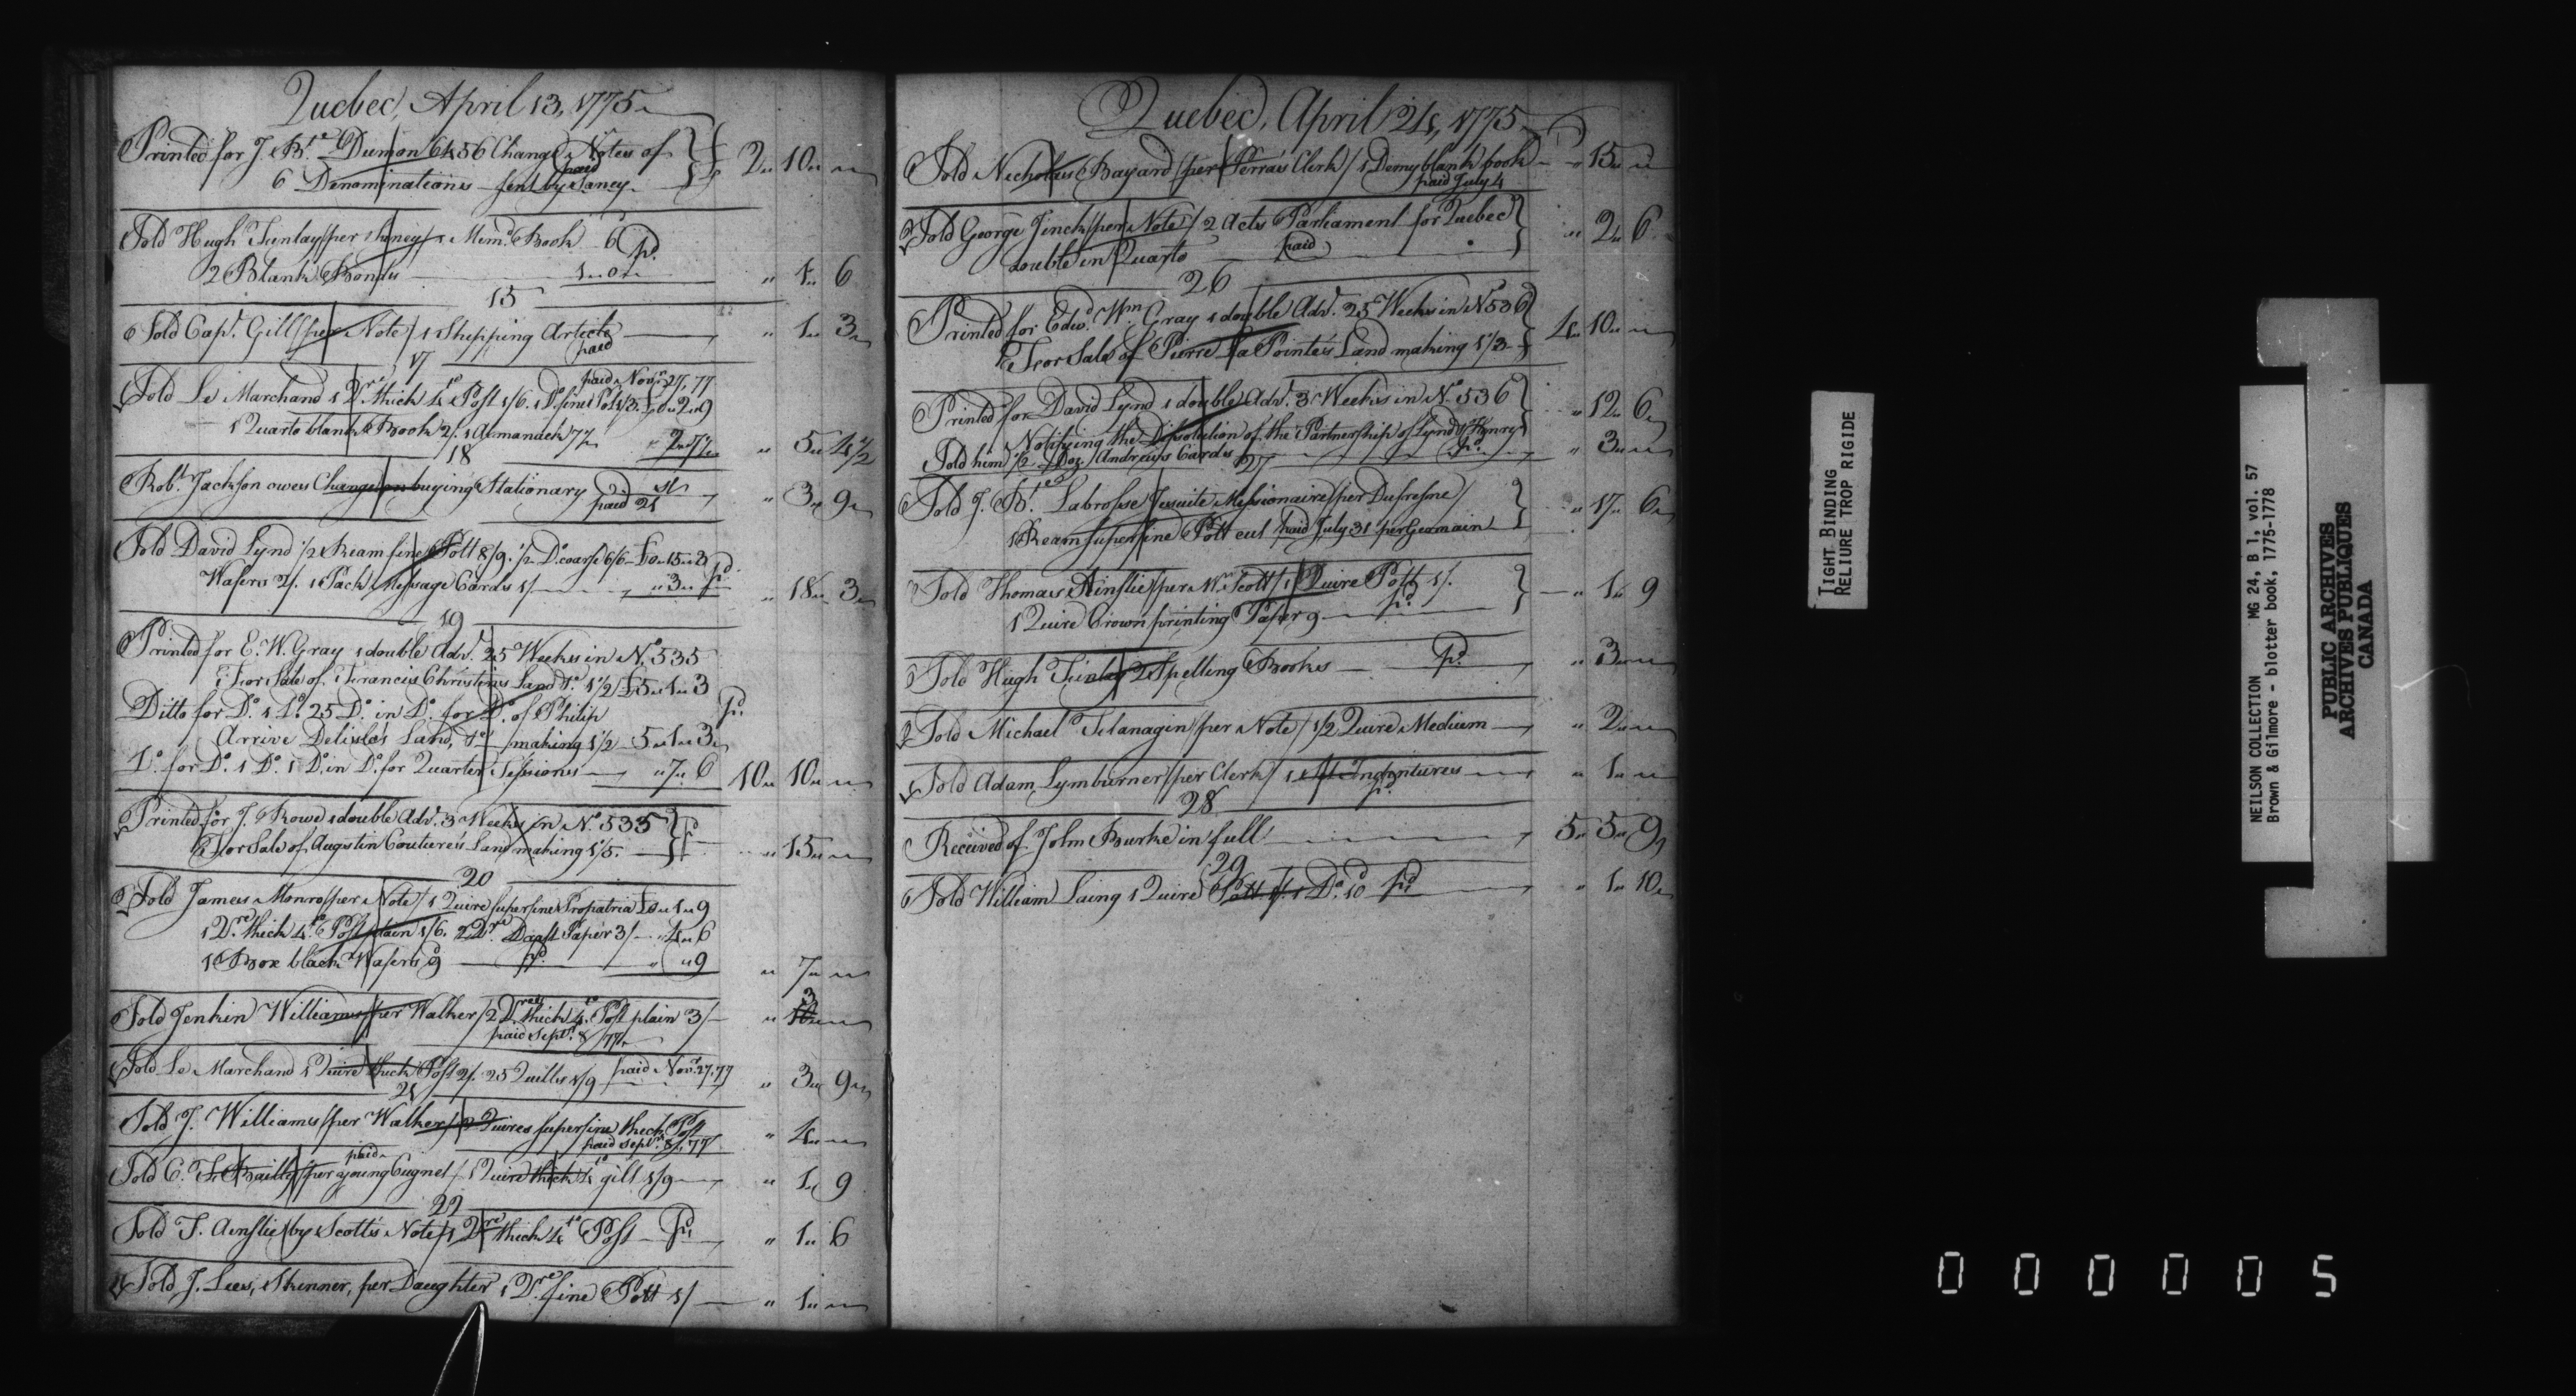 Quebec, April 13, 1775
Printed for J. Bte. Dumon 6456 Change Notes of
6 Denominations sent by Saney. paid
2 " 10 "
Sold Hugh Finlay / per Saney / 1 Memd. Book 6 pd.
2 Blank Bonds 1 " 0 "
" 1 " 6
15
Sold Capt. Gill / per Note / 1 Shipping Article " 1 " 3
paid
17
Sold Le Marchand 1 Qre. thick 4to Post 1/6. 1 Do. fine Pott 1/3. £0 " 2 " 9
paid Novr. 27, 77
1 Quarto blank Book 2/. 1 Almanack 7½ " 2 " 7½ " 5 " 4½
18
Robt. Jackson owes Change on buying Stationary " 3 " 9
paid 21st
Sold David Lynd 1/2 Ream fine Pott 8/9. ½ Do. coarse 6/6 £0 " 15 " 3
Wafers 2/. 1 Pack Message Cards 1/ " 3 " pd. " 18 " 3
19
Printed for E. W. Gray 1 double Adv. 25 Weeks in No. 535
For Sale of Francis Christie's Land 1½ £5 " 1 " 3
Ditto for Do. 1 Do. 25 Do. in Do. for Do. of Philip pd.
Arrive Delisle's Land, making 1½ 5 " 1 " 3
Do. for Do. 1 Do. 1 Do. in Do. for Quarter Sessions " 7 " 6 10 " 10 "
Printed for J. Rowe 1 double Adv. 3 Weeks in No. 535
For Sale of Augustin Couture's Land making 1/5. " 15 "
20
Sold James Monro / per Note / 1 Quire superfine Propatria £0 " 1 " 9
1 Qre. thick 4to. Post plain 1/6. 2 Qrs. Draft Paper 3/ " 4 " 6
1 Box black Wafers 9 pd. " " 9
" 7 "
Sold Jenkin Williams / per Walker / 2 Qres. thick 4to. Post plain 3/ " 3 "
paid Septr. 8, 77
Sold Le Marchand 1 Quire thick Post 2/. 25 Quills 1/9 paid Novr. 27, 77 " 3 " 9
21
Sold J. Williams / per Walker / 2 Quires superfine thick Post " 4 "
paid Septr. 8, 77
Sold C. F. Bailly / per young Cugnet / 1 Quire thick 4to gilt 1/9 " 1 " 9
paid
22
Sold T. Ainslie / by Scott's Note / 1 Qre. thick 4to Post pd. " 1 " 6
Sold J. Lees, Skinner, per Daughter 1 Qre. fine Pott 1/ " 1 "
Quebec, April 24, 1775
Sold Nicholas Bayard / per Perras Clerk / 1 Demy blank book " 15 "
paid July 4
Sold George Finch / per Note / 2 Acts Parliament for Quebec
double in Quarto paid " 2 " 6
26
Printed for Edwd. Wm. Gray 1 double Adv. 25 Weeks in No. 536
For Sale of Pierre La Pointe's Land making 1/3 4 " 10 "
Printed for David Lynd 1 double Adv. 3 Weeks in No. 536 " 12 " 6
Notifying the Dissolution of the Partnership of Lynd & Henry
Sold him ½ Doz. Andrews Cards pd. " 3 "
27
Sold J. Bte. Labrosse Jesuite Missionaire / per Dufresne / " 17 " 6
1 Ream superfine Pott cut paid July 31 per Germain
Sold Thomas Ainslie / per Mr. Scott / 1 Quire Pott 1/.
1 Quire Crown printing Paper 9 pd. " 1 " 9
Sold Hugh Finlay 2 Spelling Books pd. " 3 "
Sold Michael Flanagin / per Note / 1/2 Quire Medium " 2 "
Sold Adam Lymburner / per Clerk / 1 Indentures " 1 "
pd.
28
Received of John Burke in full 5 " 5 " 9
29
Sold William Laing 1 Quire Pott 1/. 1 Do. 10 pd. " 1 " 10
TIGHT BINDING
RELIURE TROP RIGIDE
NEILSON COLLECTION MG 24, B 1, vol. 57
Brown & Gilmore - blotter book, 1775-1778
PUBLIC ARCHIVES
ARCHIVES PUBLIQUES
CANADA
000005